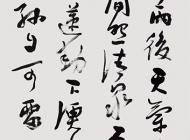 雨後天氣
間照清泉石
蓮動下漁
孫自可留